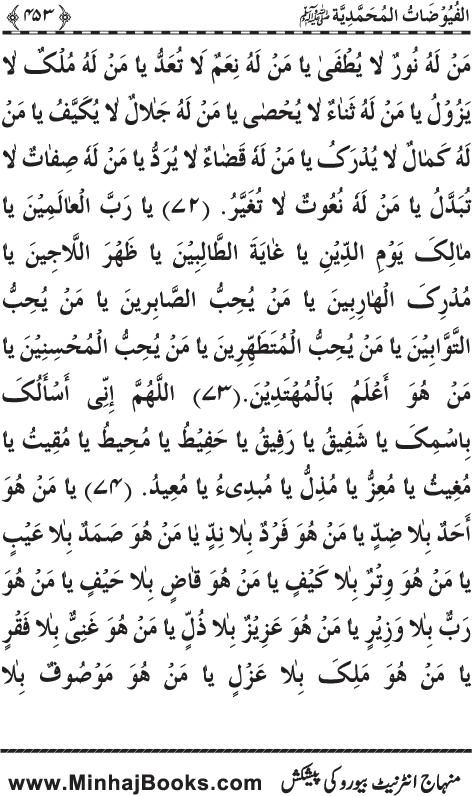 الفُيُوْضَاتُ المُحَمَّدِيَّة ﷺ ﴿۴۵۳﴾
مَنْ لَهُ نُورٌ لَا يُطْفَىٰ يَا مَنْ لَهُ نِعَمٌ لَا تُعَدُّ يَا مَنْ لَهُ مُلْكٌ لَا
يَزُوْلُ يَا مَنْ لَهُ ثَنَاءٌ لَا يُحْصٰى يَا مَنْ لَهُ جَلَالٌ لَا يُكَيَّفُ يَا مَنْ
لَهُ كَمَالٌ لَا يُدْرَكُ يَا مَنْ لَهُ قَضَاءٌ لَا يُرَدُّ يَا مَنْ لَهُ صِفَاتٌ لَا
تُبَدَّلُ يَا مَنْ لَهُ نُعُوتٌ لَا تُغَيَّرُ. (۷۲) يَا رَبَّ الْعَالَمِيْنَ يَا
مَالِكَ يَوْمِ الدِّيْنِ يَا غَايَةَ الطَّالِبِيْنَ يَا ظَهْرَ اللَّاجِينَ يَا
مُدْرِكَ الْهَارِبِينَ يَا مَنْ يُحِبُّ الصَّابِرِينَ يَا مَنْ يُحِبُّ
التَّوَّابِيْنَ يَا مَنْ يُحِبُّ الْمُتَطَهِّرِينَ يَا مَنْ يُحِبُّ الْمُحْسِنِيْنَ يَا
مَنْ هُوَ أَعْلَمُ بِالْمُهْتَدِيْنَ.(۷۳) اللَّهُمَّ إِنِّى أَسْأَلُكَ
بِاسْمِكَ يَا شَفِيْقُ يَا رَفِيْقُ يَا حَفِيْظُ يَا مُحِيْطُ يَا مُقِيتُ يَا
مُغِيثُ يَا مُعِزُّ يَا مُذِلُّ يَا مُبدِىءُ يَا مُعِيدُ. (۷۴) يَا مَنْ هُوَ
أَحَدٌ بِلَا ضِدٍّ يَا مَنْ هُوَ فَرْدٌ بِلَا نِدٍّ يَا مَنْ هُوَ صَمَدٌ بِلَا عَيْبٍ
يَا مَنْ هُوَ وِتْرٌ بِلَا كَيْفٍ يَا مَنْ هُوَ قَاضٍ بِلَا حَيْفٍ يَا مَنْ هُوَ
رَبٌّ بِلَا وَزِيْرٍ يَا مَنْ هُوَ عَزِيْزٌ بِلَا ذُلٍّ يَا مَنْ هُوَ غَنِىٌّ بِلَا فَقْرٍ
يَا مَنْ هُوَ مَلِكٌ بِلَا عَزْلٍ يَا مَنْ هُوَ مَوْصُوفٌ بِلَا
منہاج انٹرنیٹ بیورو کی پیشکش www.MinhajBooks.com